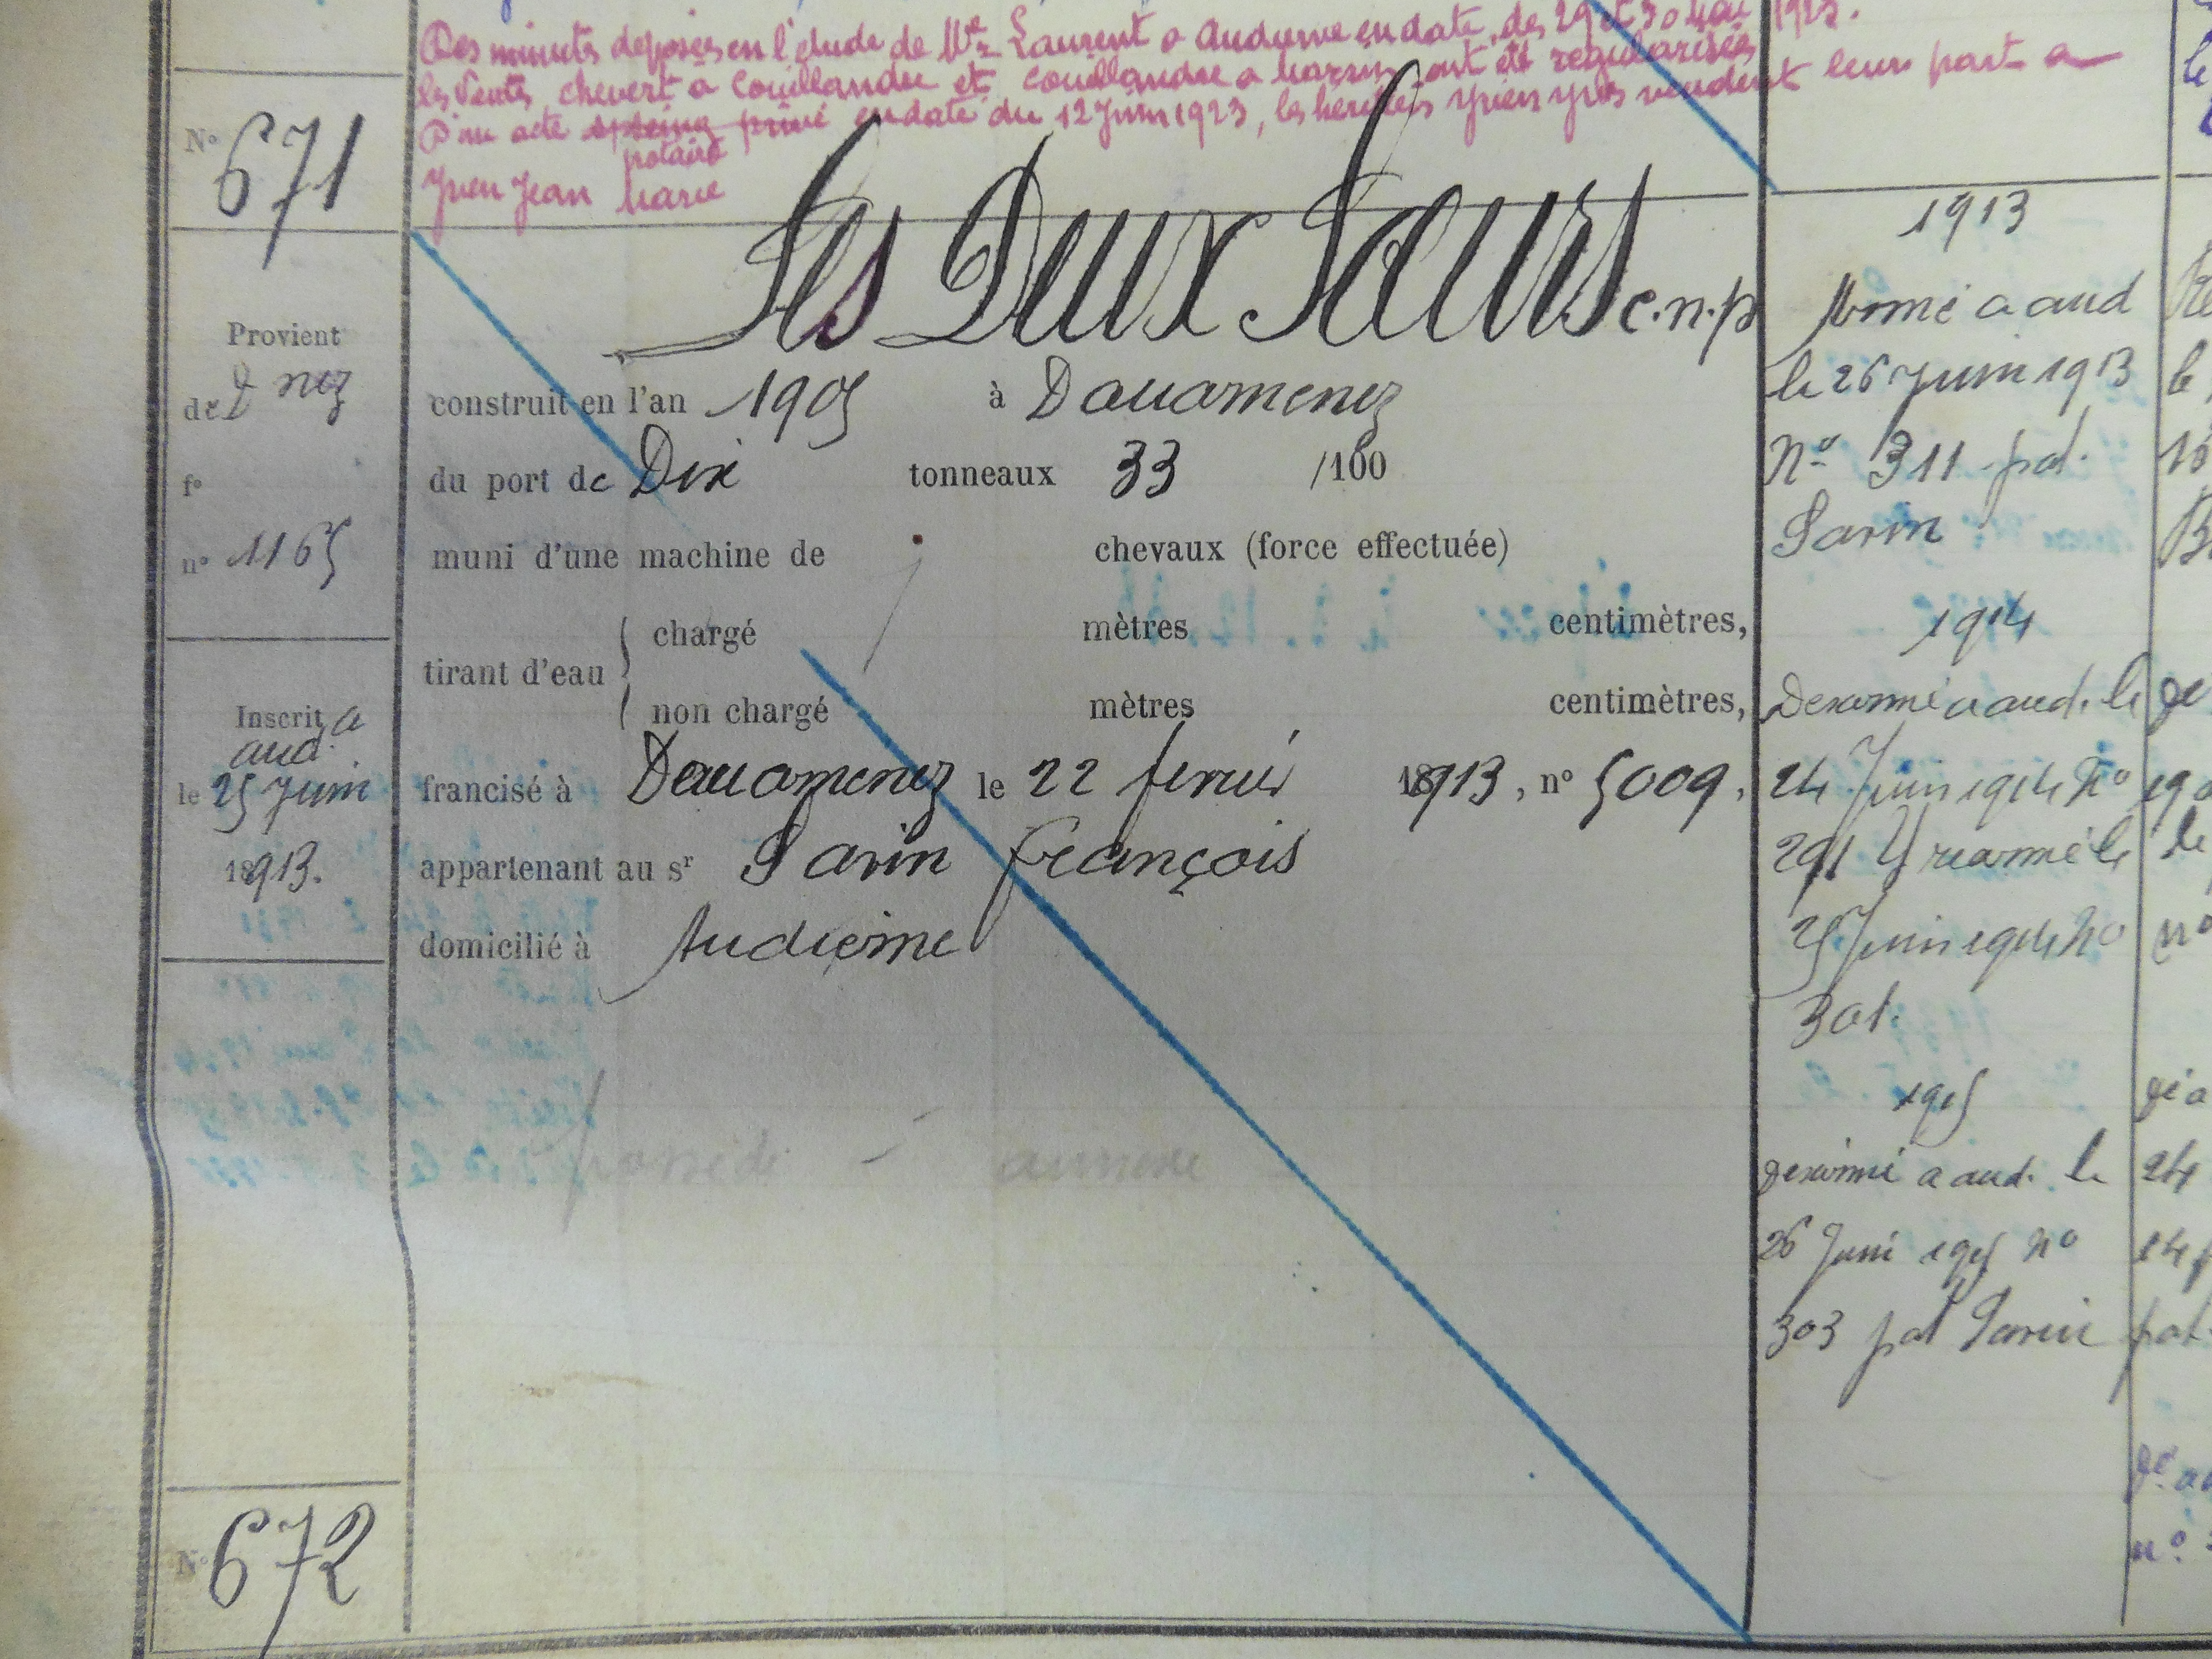 Des minutes déposées en l'étude de Me Laurent a Audierne en date des 29 et 30 Mai 1923.
les Ventes, chevert a Couillandre et Couillandre a Marzin ont été régularisées
D'un acte sp seing privé en date du 12 Juin 1923, les héritiers Yven Yves vendent leur part a
notarié
Yven Jean Marie
No 671
Les Deux Sœurs c.n.p
Provient
de D nez
fo
no 1165
construit en l'an 1905 à Douarnenez
du port de Dix tonneaux 33 /100
muni d'une machine de chevaux (force effectuée)
tirant d'eau { chargé mètres centimètres,
non chargé mètres centimètres,
Inscrit a
aud.
le 25 Juin
18913.
francisé à Douarnenez le 22 fevrier 18913, no 5009,
appartenant au sr Sarin François
domicilié à Audierne
possède annexe
No 672
1913
Armé a aud
le 26 Juin 1913
No 311 pat.
Sarin
1914
Desarmé a aud. le
24 Juin 1914 No
291 Y rearmé le
25 Juin 1914 No
301.
1915
desarmé a aud. le
26 Juin 1915 No
303 pat Sarin